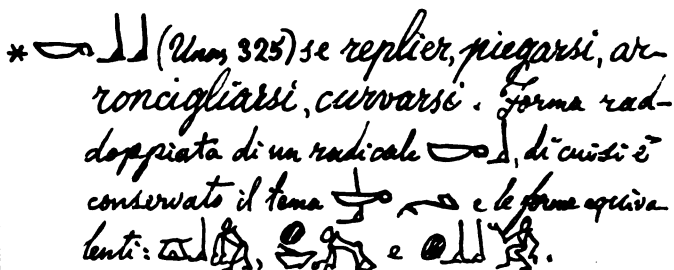 * 𓎡𓃀𓃀 (Unas, 325) se replier, piegarsi, ar-
roncigliarsi, curvarsi. Forma rad-
doppiata di un radicale 𓎡𓃀, di cui si è
conservato il tema e le forme equiva
lenti: , e .